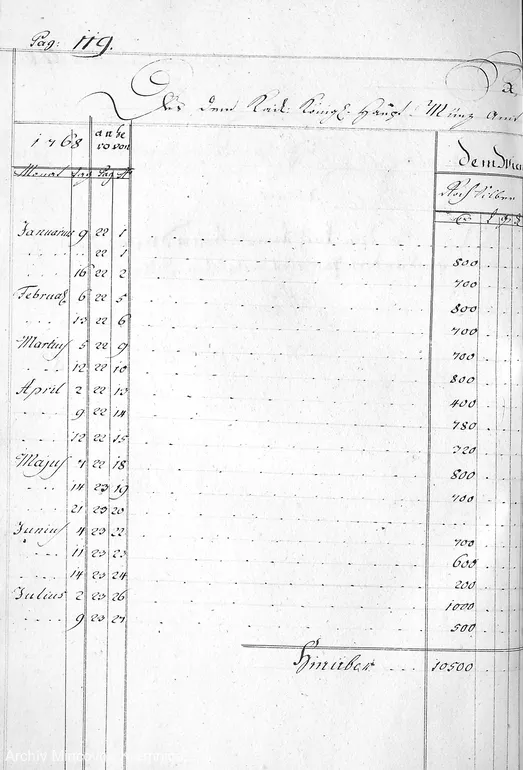 Pag: 119.
Des dem Kaÿ: Königl: Haupt-Münz Amt
1768 anhe vo von dem Wie
Monat Tag Pag N Rosch Silber
Januarius 9 22 1
22 1 800
16 22 2 700
Februar 6 22 5 800
13 22 6 700
Martius 5 22 9 700
12 22 10 800
April 2 22 13 400
9 22 14 780
12 22 15 720
Majus 7 22 18 800
14 23 19 700
21 23 20
Junius 4 23 22 700
11 23 23 600
14 23 24 200
Julius 2 23 26 1000
9 23 27 500
Hinüber 10500
Archív Mincovne Kremnica